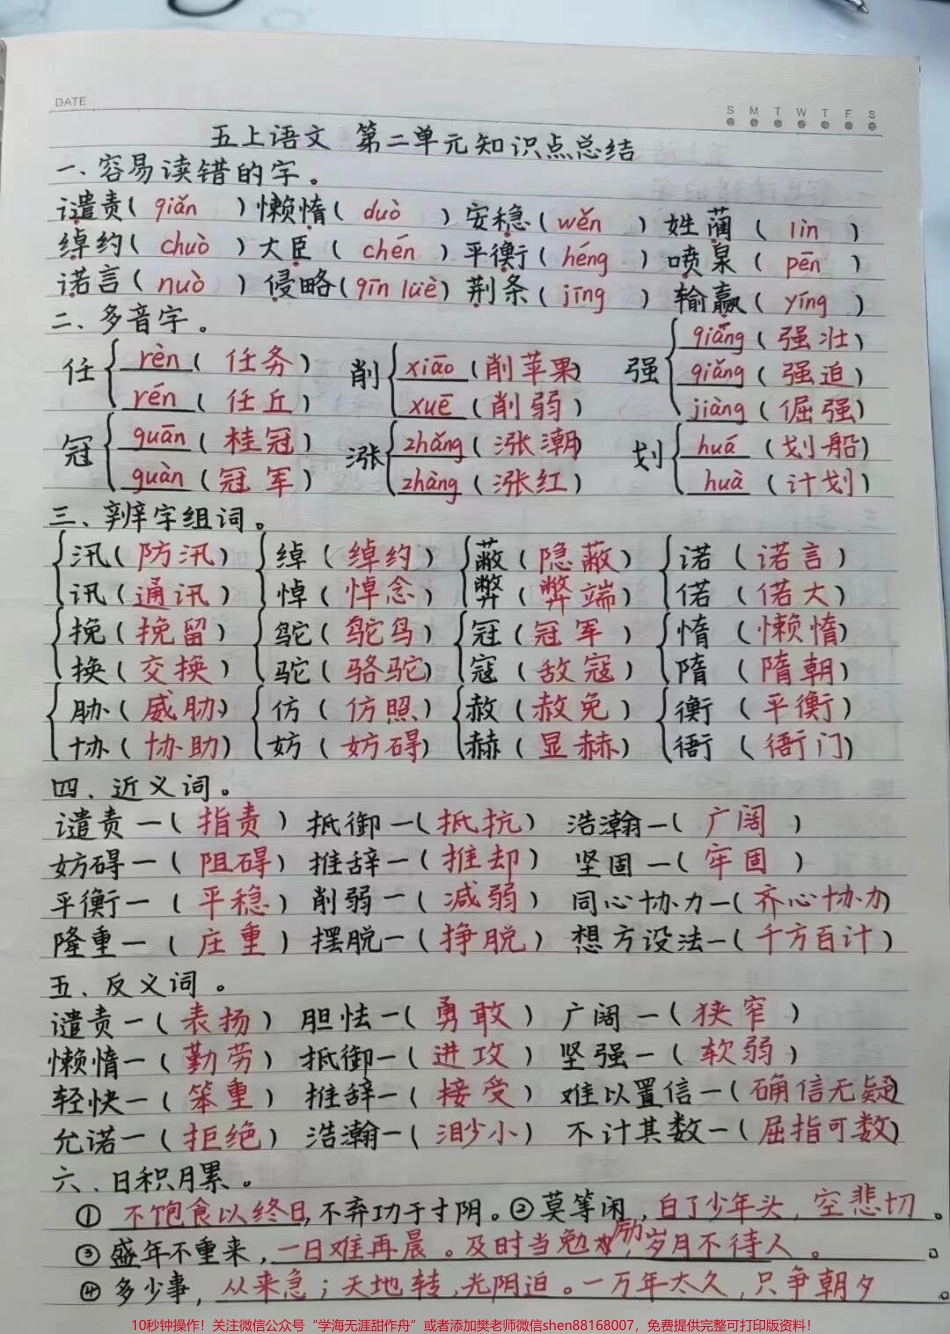 DATE
S M T W T F S
五上语文 第二单元知识点总结
一、容易读错的字。
谴责(qiǎn) 懒惰(duò) 安稳(wěn) 姓蔺(lìn)
绰约(chuò) 大臣(chén) 平衡(héng) 喷泉(pēn)
诺言(nuò) 侵略(qīn lüè) 荆条(jīng) 输赢(yíng)
二、多音字。
任{rèn(任务) 削{xiāo(削苹果) 强{qiáng(强壮)
qiǎng(强迫)
rén(任丘) xuē(削弱) jiàng(倔强)
冠{guān(桂冠) 涨{zhǎng(涨潮) 划{huá(划船)
guàn(冠军) zhàng(涨红) huà(计划)
三、辨字组词。
汛(防汛) 绰(绰约) 蔽(隐蔽) 诺(诺言)
讯(通讯) 悼(悼念) 弊(弊端) 偌(偌大)
挽(挽留) 鸵(鸵鸟) 冠(冠军) 惰(懒惰)
换(交换) 驼(骆驼) 寇(敌寇) 隋(隋朝)
胁(威胁) 仿(仿照) 赦(赦免) 衡(平衡)
协(协助) 妨(妨碍) 赫(显赫) 衙(衙门)
四、近义词。
谴责—(指责) 抵御—(抵抗) 浩瀚—(广阔)
妨碍—(阻碍) 推辞—(推却) 坚固—(牢固)
平衡—(平稳) 削弱—(减弱) 同心协力—(齐心协力)
隆重—(庄重) 摆脱—(挣脱) 想方设法—(千方百计)
五、反义词。
谴责—(表扬) 胆怯—(勇敢) 广阔—(狭窄)
懒惰—(勤劳) 抵御—(进攻) 坚强—(软弱)
轻快—(笨重) 推辞—(接受) 难以置信—(确信无疑)
允诺—(拒绝) 浩瀚—(渺小) 不计其数—(屈指可数)
六、日积月累。
① 不饱食以终日,不弃功于寸阴。②莫等闲,白了少年头,空悲切。
③ 盛年不重来,一日难再晨。及时当勉励,岁月不待人。
④ 多少事,从来急;天地转,光阴迫。一万年太久,只争朝夕。
10秒钟操作！关注微信公众号“学海无涯甜作舟”或者添加樊老师微信shen88168007，免费提供完整可打印版资料！